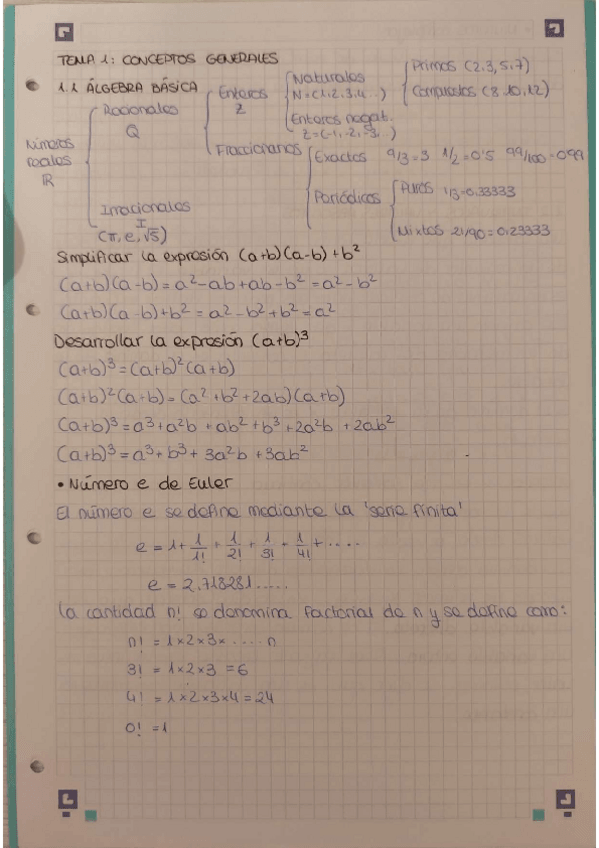 TEMA 1: CONCEPTOS GENERALES
1.1 ÁLGEBRA BÁSICA
Números reales R
Racionales Q
Enteros Z
Naturales N=(1,2,3,4...)
Primos (2,3,5,7)
Compuestos (8,10,12)
Enteros negat. Z=(-1,-2,-3,..)
Fraccionarios
Exactos 9/3=3 1/2=0'5 99/100=0.99
Periódicos
Puros 1/3=0.33333
Mixtos 21/90=0.23333
Irracionales I
(π, e, √5)
Simplificar la expresión (a+b)(a-b)+b²
(a+b)(a-b)=a²-ab+ab-b²=a²-b²
(a+b)(a-b)+b²=a²-b²+b²=a²
Desarrollar la expresión (a+b)³
(a+b)³=(a+b)²(a+b)
(a+b)²(a+b)=(a²+b²+2ab)(a+b)
(a+b)³=a³+a²b+ab²+b³+2a²b+2ab²
(a+b)³=a³+b³+3a²b+3ab²
• Número e de Euler
El número e se define mediante la 'serie finita'
e=1+1/1!+1/2!+1/3!+1/4!+....
e=2,718281.....
La cantidad n! se denomina factorial de n y se define como:
n!=1×2×3×.....n
3!=1×2×3=6
4!=1×2×3×4=24
0!=1